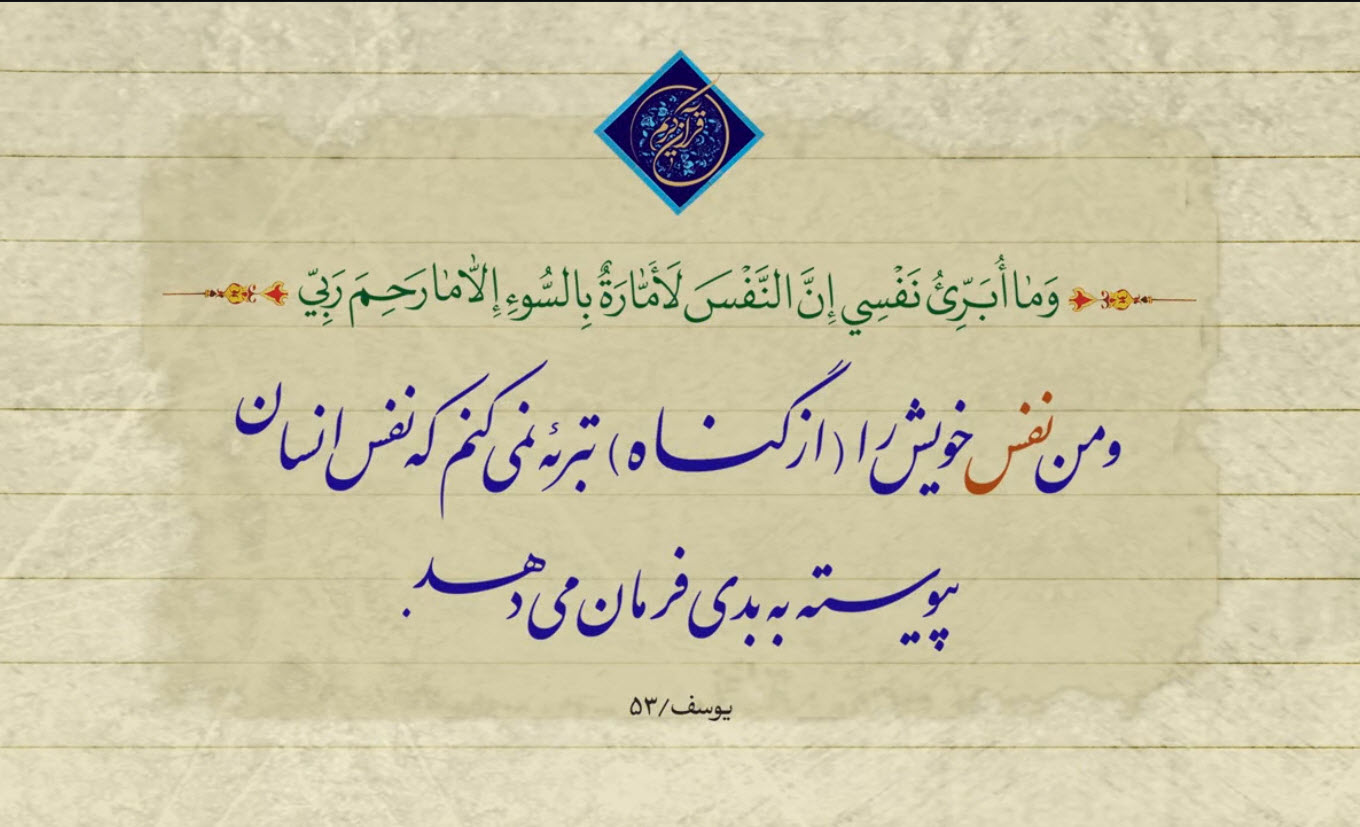 قرآن کریم
وَمٰا أُبَرِّئُ نَفْسِي إِنَّ النَّفْسَ لَأَمّٰارَةٌ بِالسُّوءِ إِلاّٰ مٰا رَحِمَ رَبِّيّ
ومن نفس خویش را (از گناه) تبرئه نمی کنم که نفس انسان
پیوسته به بدی فرمان می دهد.
یوسف/۵۳